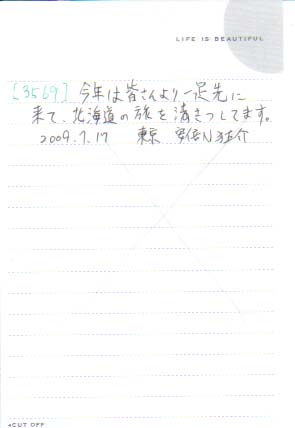 LIFE IS BEAUTIFUL
[3569] 今年は皆さんより一足先に
来て、北海道の旅を満きつしてます。
2009.7.17 東京
CUT OFF